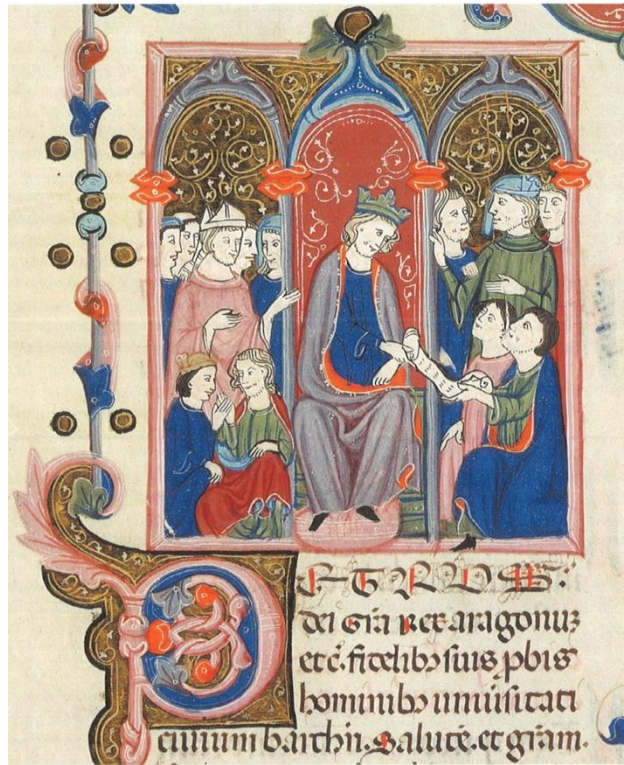 PETRUS:
dei gr̃a rex aragonuʒ
etc̃. fidelibꝫ suis ꝓbis
hominibꝫ uniu̾sitati
ciuium barchñ. Salutē. et gr̃am.